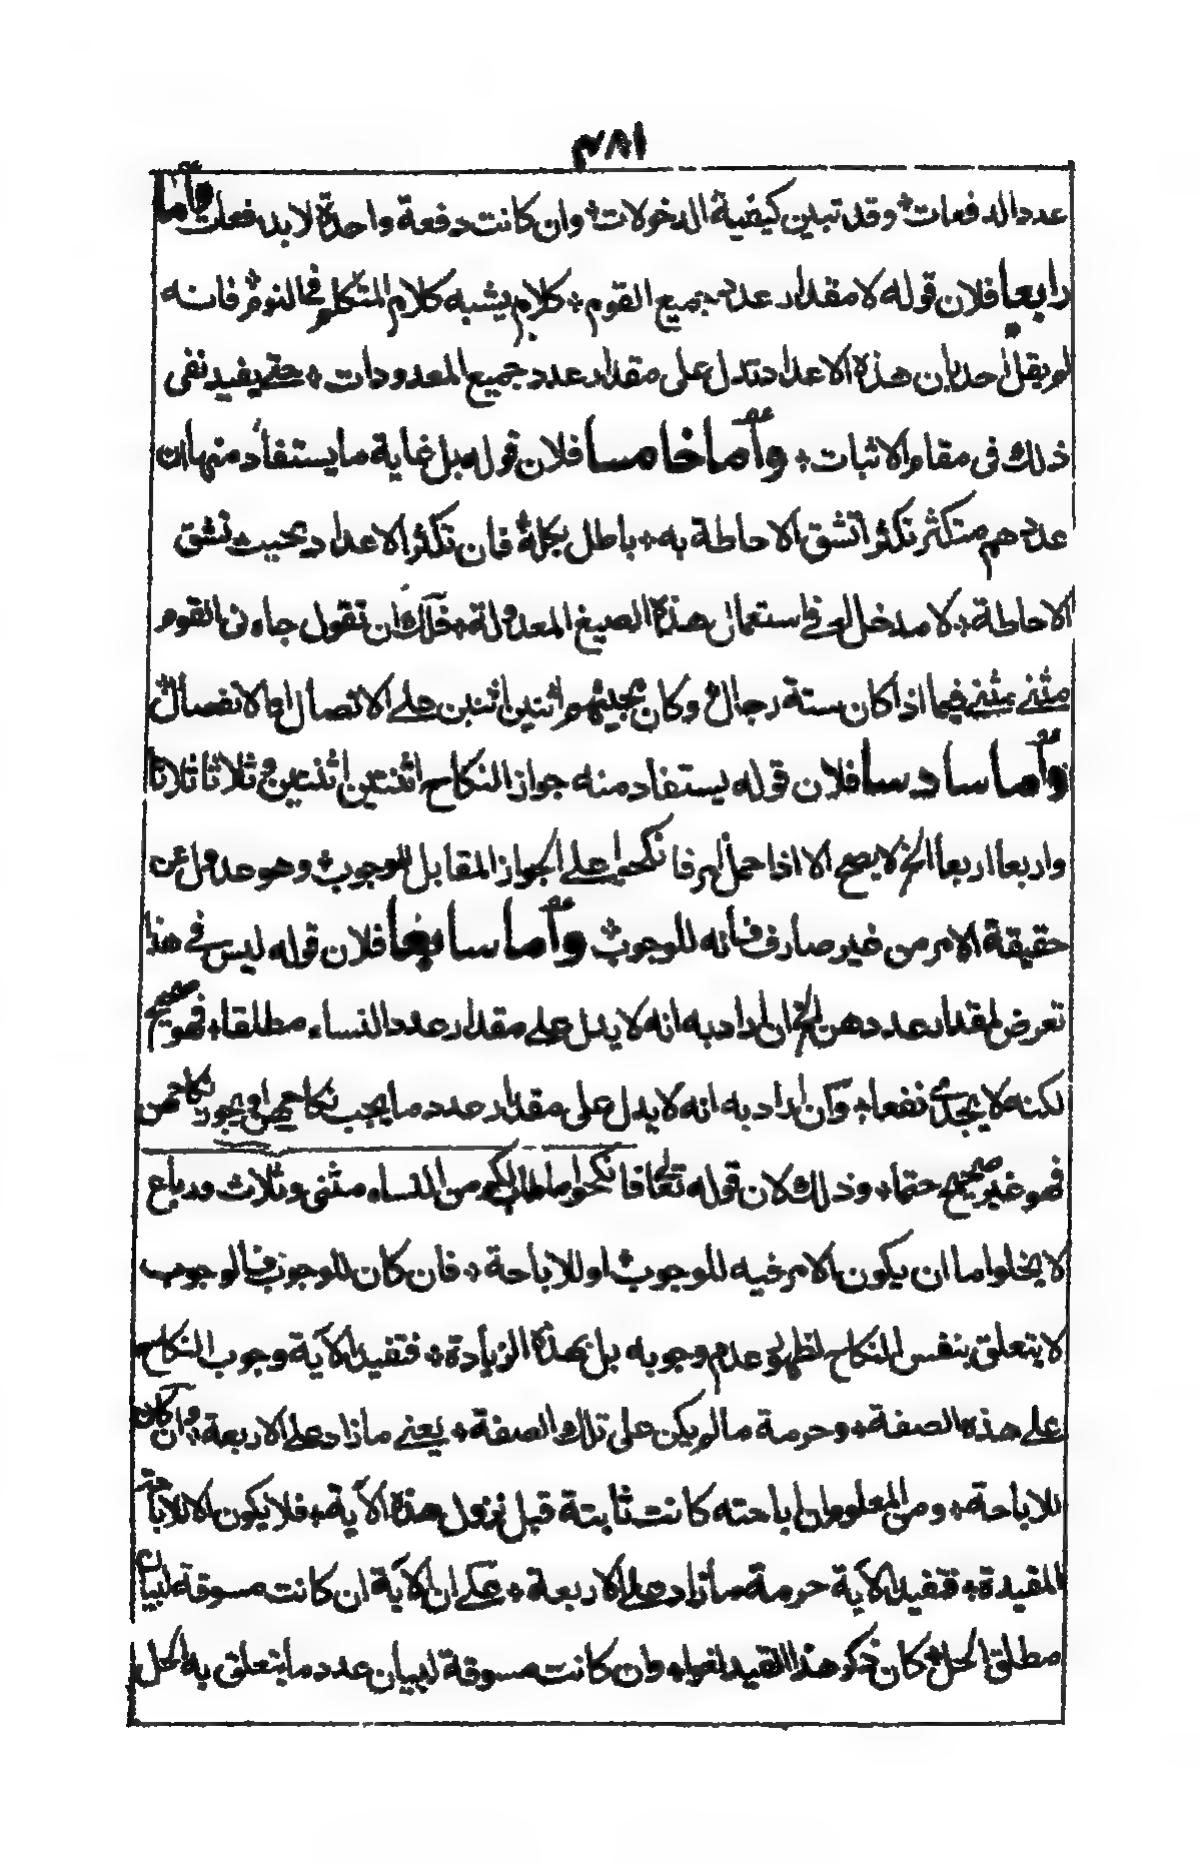 ٣٨١
عدد الدفعات، وقد تبين كيفية الدخولات، وان كانت دفعة واحدة لا بد فعات واما
رابعا فلان قوله لا مقدار عدد جميع القوم، كلام يشبه كلام المتكلم في النوم، فانه
لم يقل احد بان هذه الاعداد تدل على مقدار عدد جميع المعدودات، حتى يفيد نفى
ذلك فى مقام الاثبات، واما خامسا فلان قوله بل غاية ما يستفاد منها ان
عددهم متكثر تكثرا تشق الاحاطة به، باطل بجملته فان تكثر الاعداد بحيث تشق
الاحاطة، لا مدخل له في استعمال هذه الصيغ المعدولة، فلك ان تقول جاءنى القوم
مثنى مثنى فيما اذا كان ستة رجال، وكان مجيئهم اثنين اثنين على الاتصال او الانفصال،
واما سادسا فلان قوله يستفاد منه جواز النكاح اثنتين اثنتين وثلاثا ثلاثا
واربعا اربعا الخ لا يصح الا اذا حمل امر فانكحوا على الجواز المقابل للوجوب، وهو عدول عن
حقيقة الامر من غير صارف فانه للوجوب، واما سابعا فلان قوله ليس في هذا
تعرض لمقدار عددهن الخ ان اراد به انه لا يدل على مقدار عدد النساء مطلقا، فهو صحيح
لكنه لا يجدى نفعا، وان اراد به انه لا يدل على مقدار عدد ما يجب نكاحهن او يجوز نكاحهن
فهو غير صحيح حتما، وذلك لان قوله تعالى فانكحوا ما طاب لكم من النساء مثنى وثلاث ورباع
لا يخلوا ما ان يكون الامر فيه للوجوب، او للاباحة، فان كان للوجوب فالوجوب
لا يتعلق بنفس النكاح لظهور عدم وجوبه بل بهذه الزيادة، فتفيد الآية وجوب النكاح
على هذه الصفة، وحرمة ما لم يكن على تلك الصفة، يعنى ما زاد على الاربعة، وان كان
للاباحة، ومن المعلوم ان اباحته كانت ثابتة قبل نزول هذه الآية، فلا يكون الا للاباحة
المقيدة، فتفيد الآية حرمة ما زاد على الاربعة، على ان الآية ان كانت مسوقة لبيان
مطلق الحل، كان ذكر هذا القيد لغوا، وان كانت مسوقة لبيان عدد ما يتعلق به الحل